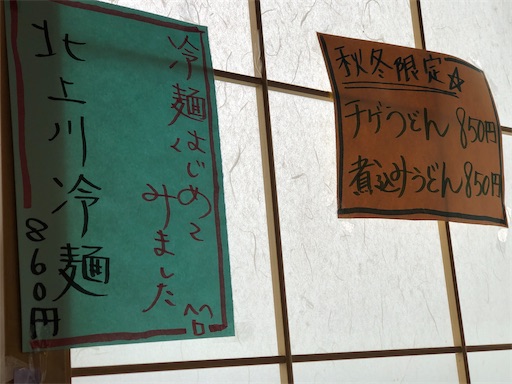 冷麺はじめて
みました
北上川冷麺
860円
秋冬限定☆
チゲうどん 850円
煮込みうどん 850円